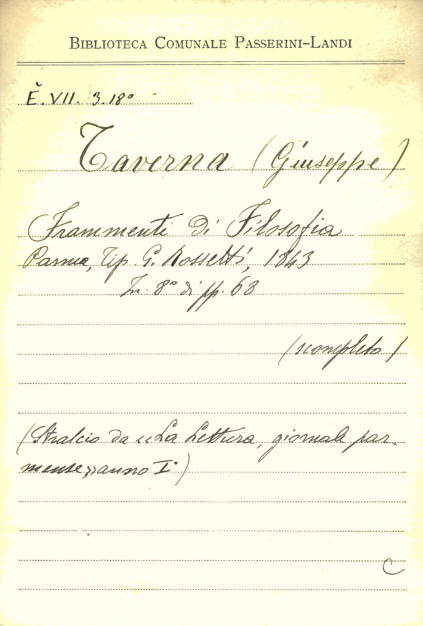 BIBLIOTECA COMUNALE PASSERINI-LANDI
Ě. VII. 3. 18°
Taverna (Giuseppe)
Frammenti di Filosofia
Parma, Tip. G. Rossetti, 1843
In 8° di pp. 68
(incompleto)
(Stralcio da "La Lettura, giornale par-
mense", anno I°)
C